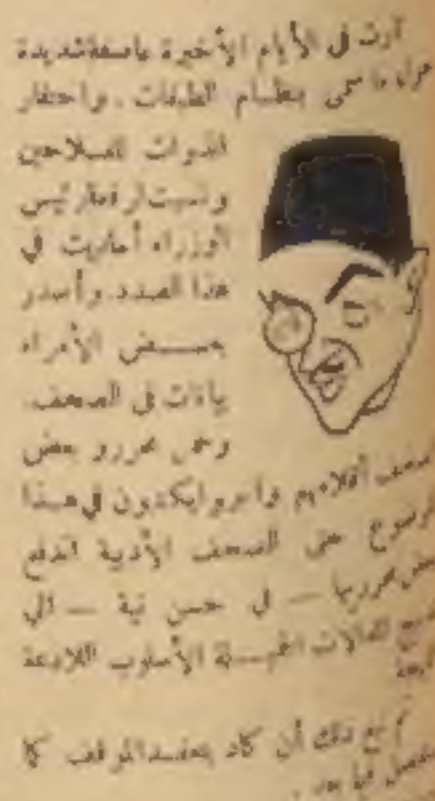 ثارت في الأيام الأخيرة عاصفة شديدة
حول ما سمى بنظام الطبقات . واحتقار
الذوات للفلاحين
ونسبت لرفعة رئيس
الوزراء أحاديث في
هذا الصدد . وأصدر
بعض الأمراء
بيانات في الصحف .
محررو بعض
الصحف أقلامهم يكتبون في هذا
الموضوع حتى الصحف الأدبية اندفع
بعض محرريها — في حسن نية — الى
المقالات الجميلة الأسلوب اللاذعة
ذلك أن كاد يتعقد الموقف كما
فيما بعد .